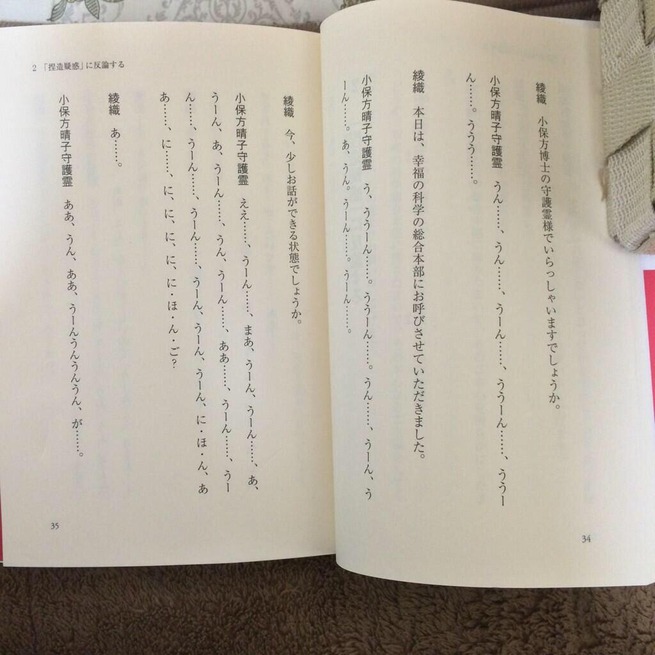 綾織　小保方博士の守護霊様でいらっしゃいますでしょうか。
小保方晴子守護霊　うん……、うん……、うーん……、ううーん……。ううう……。
綾織　本日は、幸福の科学の総合本部にお呼びさせていただきました。
小保方晴子守護霊　う、ううーん……。ううーん……。うん……、うーん、う
ーん……。あ、うん。うーん……。うーん……。
34
2　「捏造疑惑」に反論する
綾織　今、少しお話ができる状態でしょうか。
小保方晴子守護霊　ええ……、うーん……、まあ、うーん、うーん……、あ、
うーん、あ、うーん……、うん、うーん……、ああ……、うーん……、うー
ん……、うーん……、うーん……、うーん、うーん、うーん、に・ほ・ん、あ
あ……、に……、に、に、に、に、に・ほ・ん・ご？
綾織　あ……。
小保方晴子守護霊　ああ、うん、ああ、うーんうんうんうん、が……。
35